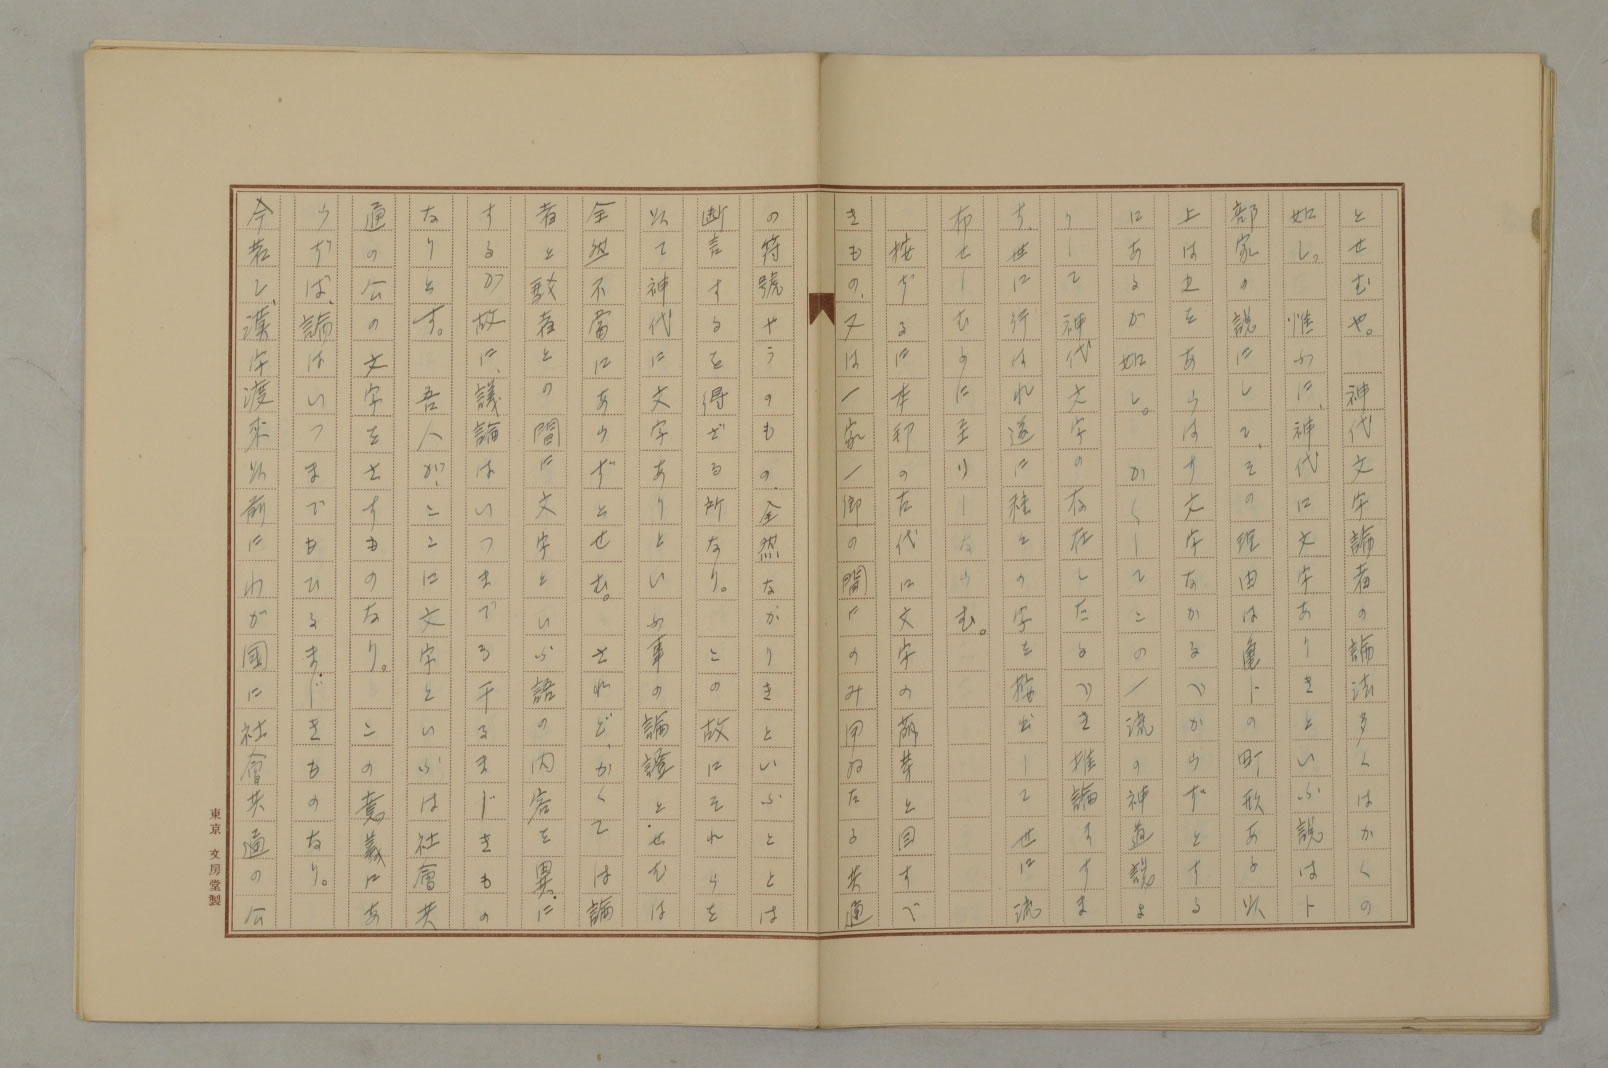 とせむや。　神代文字論者の論法多くはかくの
如し。惟ふに、神代に文字ありきといふ説は卜
部家の説にして、その理由は亀卜の町形ある以
上は之をあらはす文字なかるべからずとする
にあるが如し。かくしてこの一流の神道説よ
りして神代文字の存在したるべき推論をすま
す、世に行はれ遂に種々の字を搬出して世に流
布せしむるに至りしならむ。
按ずるに本邦の古代に文字の萌芽と目すべ
きもの、又は一家一郷の間にのみ用ゐたる共通
の符號やうのもの、全然なかりきといふことは
断言するを得ざる所なり。この故にそれらを
以て神代に文字ありといふ事の論證とせむは
全然不當にあらずとせむ。されど、かくては論
者と駁者との間に文字といふ語の内容を異に
するが故に、議論はいつまでも干るまじきもの
なりとす。吾人が、ここに文字といふは社會共
通の公の文字をさすものなり。この意義にあ
らずば、論はいつまでもひるまじきものなり。
今若し、漢字渡来以前にわが國に社會共通の公
東京 文房堂製